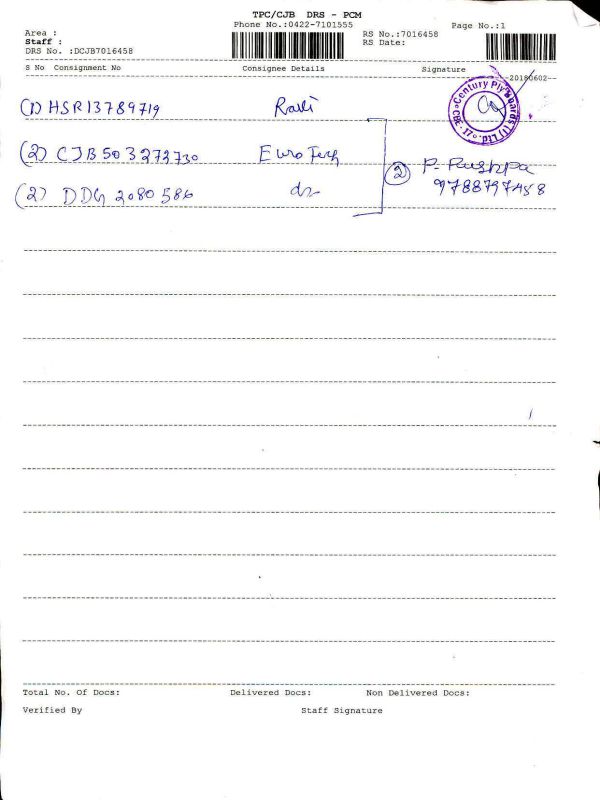 TPC/CJB DRS - PCM
Phone No.:0422-7101555
Page No.:1
Area :
RS No.:7016458
Staff :
RS Date:
DRS No. :DCJB7016458
S No Consignment No Consignee Details Signature
20180602
(1) HSR13789719
Century Ply Boards (I) Ltd.
(2) CJB503272730 Euro Tech
(2) P. Pushpa
9788797458
(2) DDG 2080586 do
Total No. Of Docs: Delivered Docs: Non Delivered Docs:
Verified By Staff Signature